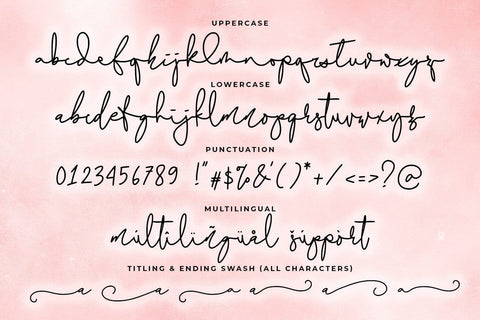 UPPERCASE
abcdefghijklmnopqrstuvwxyz
LOWERCASE
abcdefghijklmnopqrstuvwxyz
PUNCTUATION
0123456789 !"#$%&'()*+/<=>?@
MULTILINGUAL
múltîlïñgüål šúppört
TITLING & ENDING SWASH (ALL CHARACTERS)
a a a a a a a